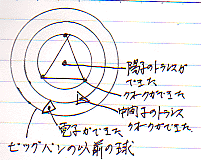 陽子のトランスが
できた
クオークができた
中間子のトランス
クオークができた
電子ができた
ビッグバンの以前の球